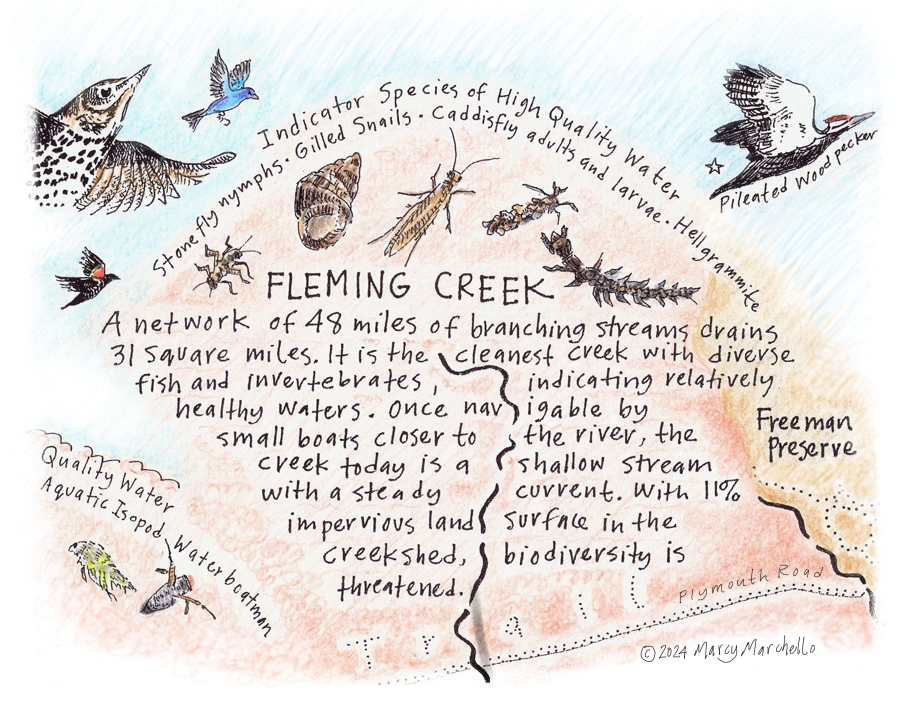 Indicator Species of High Quality Water
Stonefly nymphs. Gilled Snails. Caddisfly adults and larvae. Hellgrammite
Pileated Woodpecker
FLEMING CREEK
A network of 48 miles of branching streams drains
31 square miles. It is the cleanest creek with diverse
fish and invertebrates, indicating relatively
healthy waters. Once navigable by
small boats closer to the river, the
creek today is a shallow stream
with a steady current. With 11%
impervious land surface in the
creekshed, biodiversity is
threatened.
Freeman
Preserve
Quality Water
Aquatic Isopod, Water boatman
Plymouth Road
Trail
© 2024 Marcy Marchello